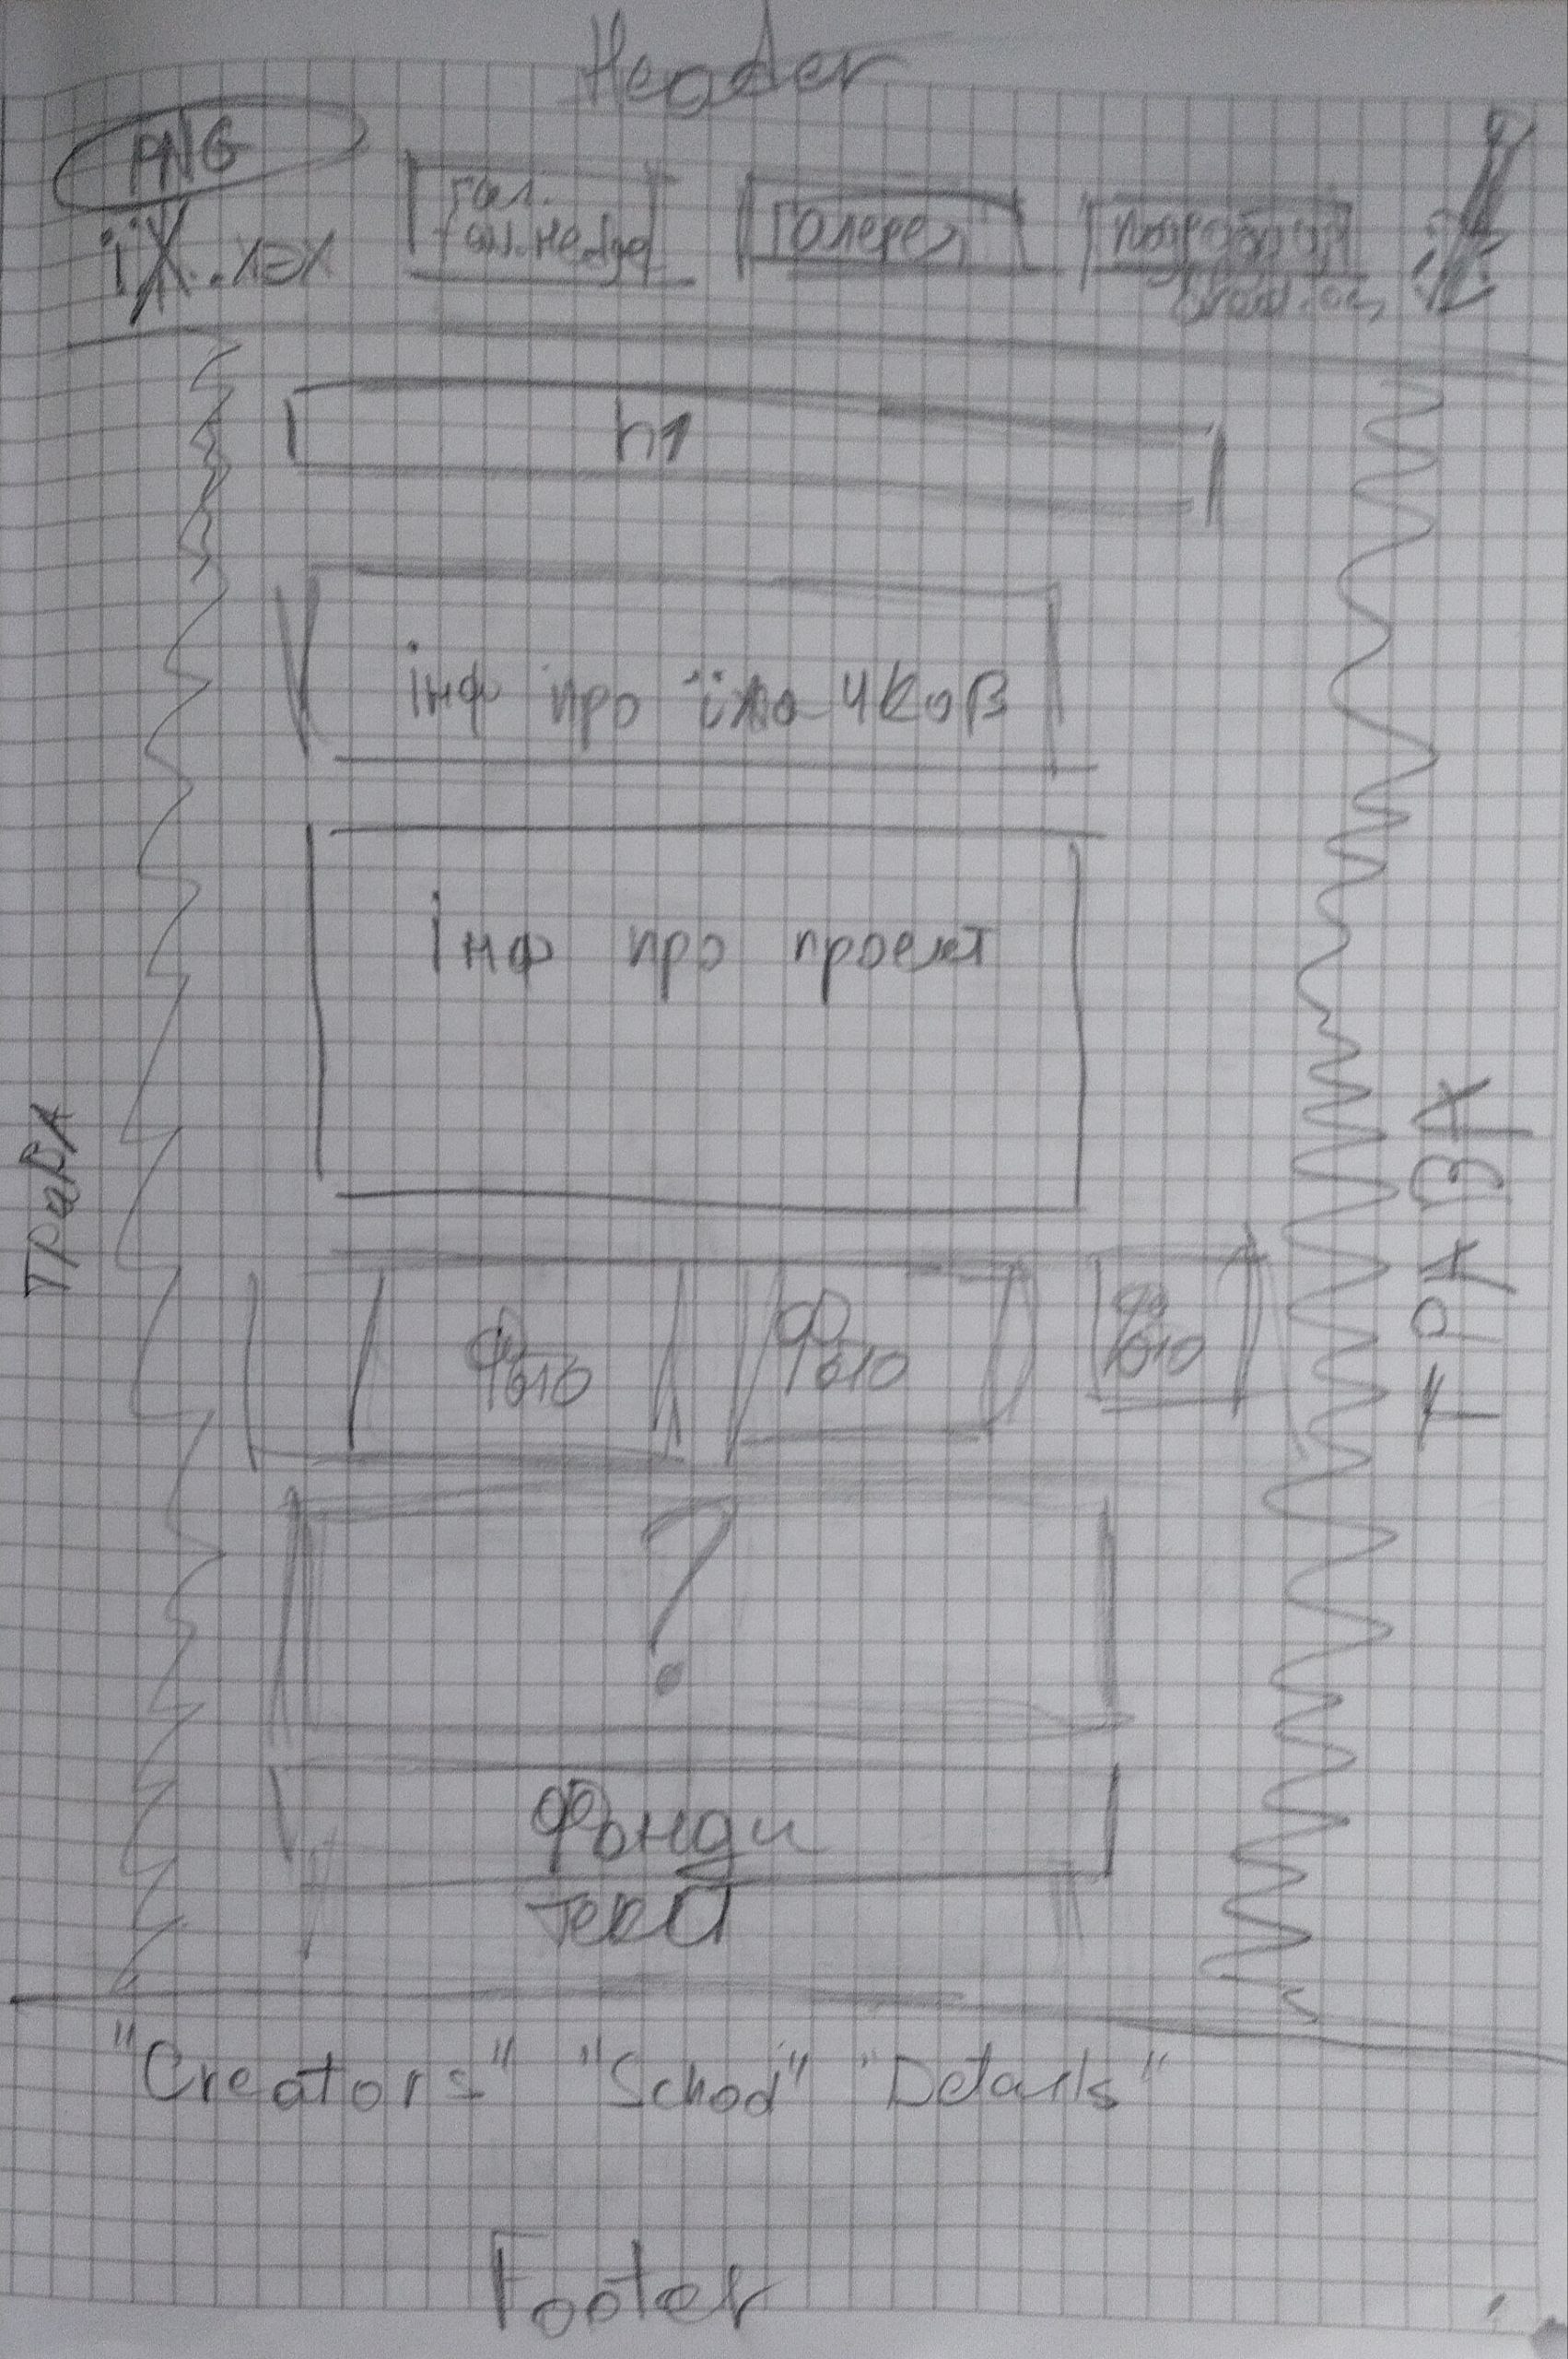 Header
PNG
гол.
Галерея
h1
інф про їжачків
Інф про проект
ТРАВА
ТРАВА
Фото
Фото
Фото
?
Фонди
текст
"Creators" "School" "Details"
Footer